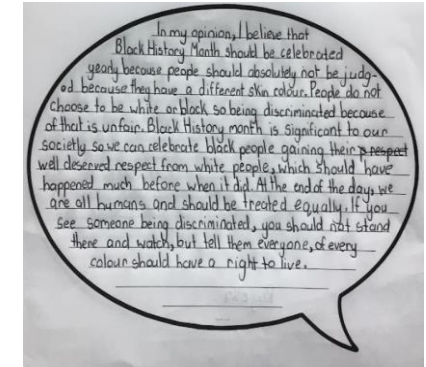 In my opinion, I believe that
Black History Month should be celebrated
yearly because people should absolutely not be judg-
ed because they have a different skin colour. People do not
choose to be white or black so being discriminated because
of that is unfair. Black History month is significant to our
society so we can celebrate black people gaining their respect
well deserved respect from white people, which should have
happened much before when it did. At the end of the day, we
are all humans and should be treated equally. If you
see someone being discriminated, you should not stand
there and watch, but tell them everyone, of every
colour should have a right to live.